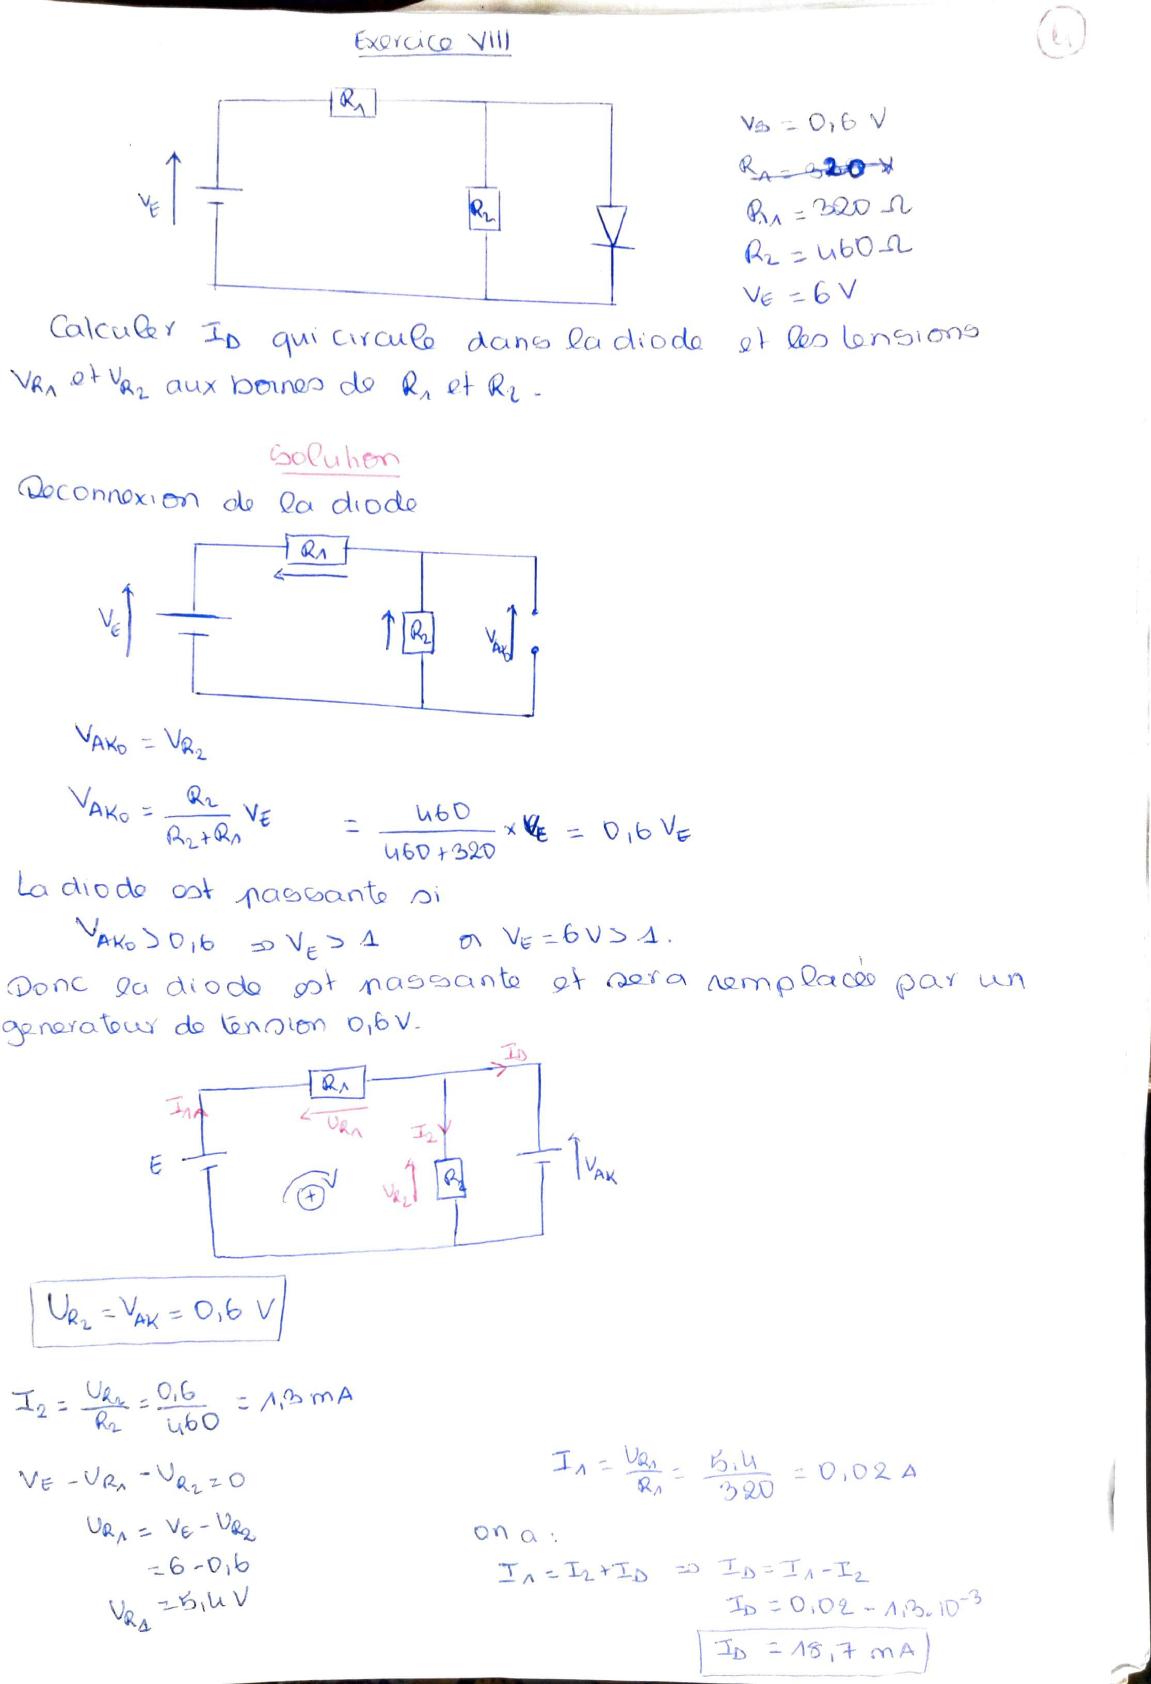 Exercice VIII
R1
VE
R2
VD = 0,6 V
R1 = 320 Ω
R2 = 460 Ω
VE = 6 V
Calculer ID qui circule dans la diode et les tensions
VR1 et VR2 aux bornes de R1 et R2.
Solution
Deconnexion de la diode
R1
VE
R2
VAK0
VAK0 = VR2
VAK0 = R2/(R2+R1) VE = 460/(460+320) × VE = 0,6 VE
La diode est passante si
VAK0 > 0,6 ⇒ VE > 1 or VE = 6V > 1.
Donc la diode est passante et sera remplacée par un
generateur de tension 0,6 V.
ID
R1
I1
UR1
I2
E
+
UR2
R2
VAK
UR2 = VAK = 0,6 V
I2 = UR2/R2 = 0,6/460 = 1,3 mA
VE - UR1 - UR2 = 0
UR1 = VE - UR2
= 6 - 0,6
UR1 = 5,4 V
I1 = UR1/R1 = 5,4/320 = 0,02 A
on a :
I1 = I2 + ID ⇒ ID = I1 - I2
ID = 0,02 - 1,3.10⁻³
ID = 18,7 mA